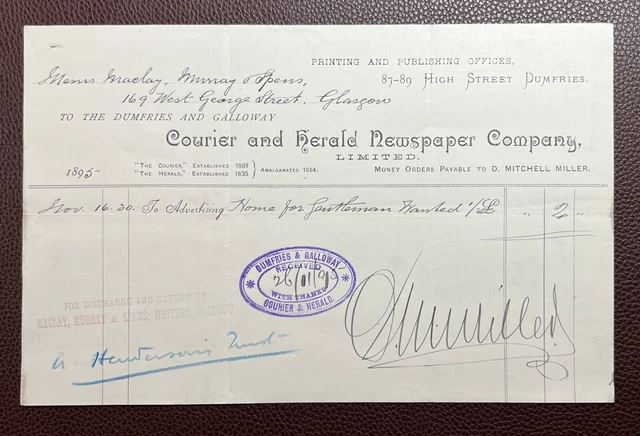 PRINTING AND PUBLISHING OFFICES,
Messrs Maclay, Murray & Spens, 87-89 HIGH STREET DUMFRIES.
169 West George Street, Glasgow
TO THE DUMFRIES AND GALLOWAY
Courier and Herald Newspaper Company,
LIMITED.
1895 "THE COURIER," ESTABLISHED 1809
"THE HERALD," ESTABLISHED 1835 } AMALGAMATED 1884. MONEY ORDERS PAYABLE TO D. MITCHELL MILLER.
Nov. 16. 20. To Advertising Home for Gentleman Wanted " 2 "
DUMFRIES & GALLOWAY
RECEIVED
26/11/95
WITH THANKS
COURIER & HERALD.
D. M. Miller
FOR DISCHARGE AND RETURN TO
MACLAY, MURRAY & SPENS, WRITERS, GLASGOW
Henderson's Trust